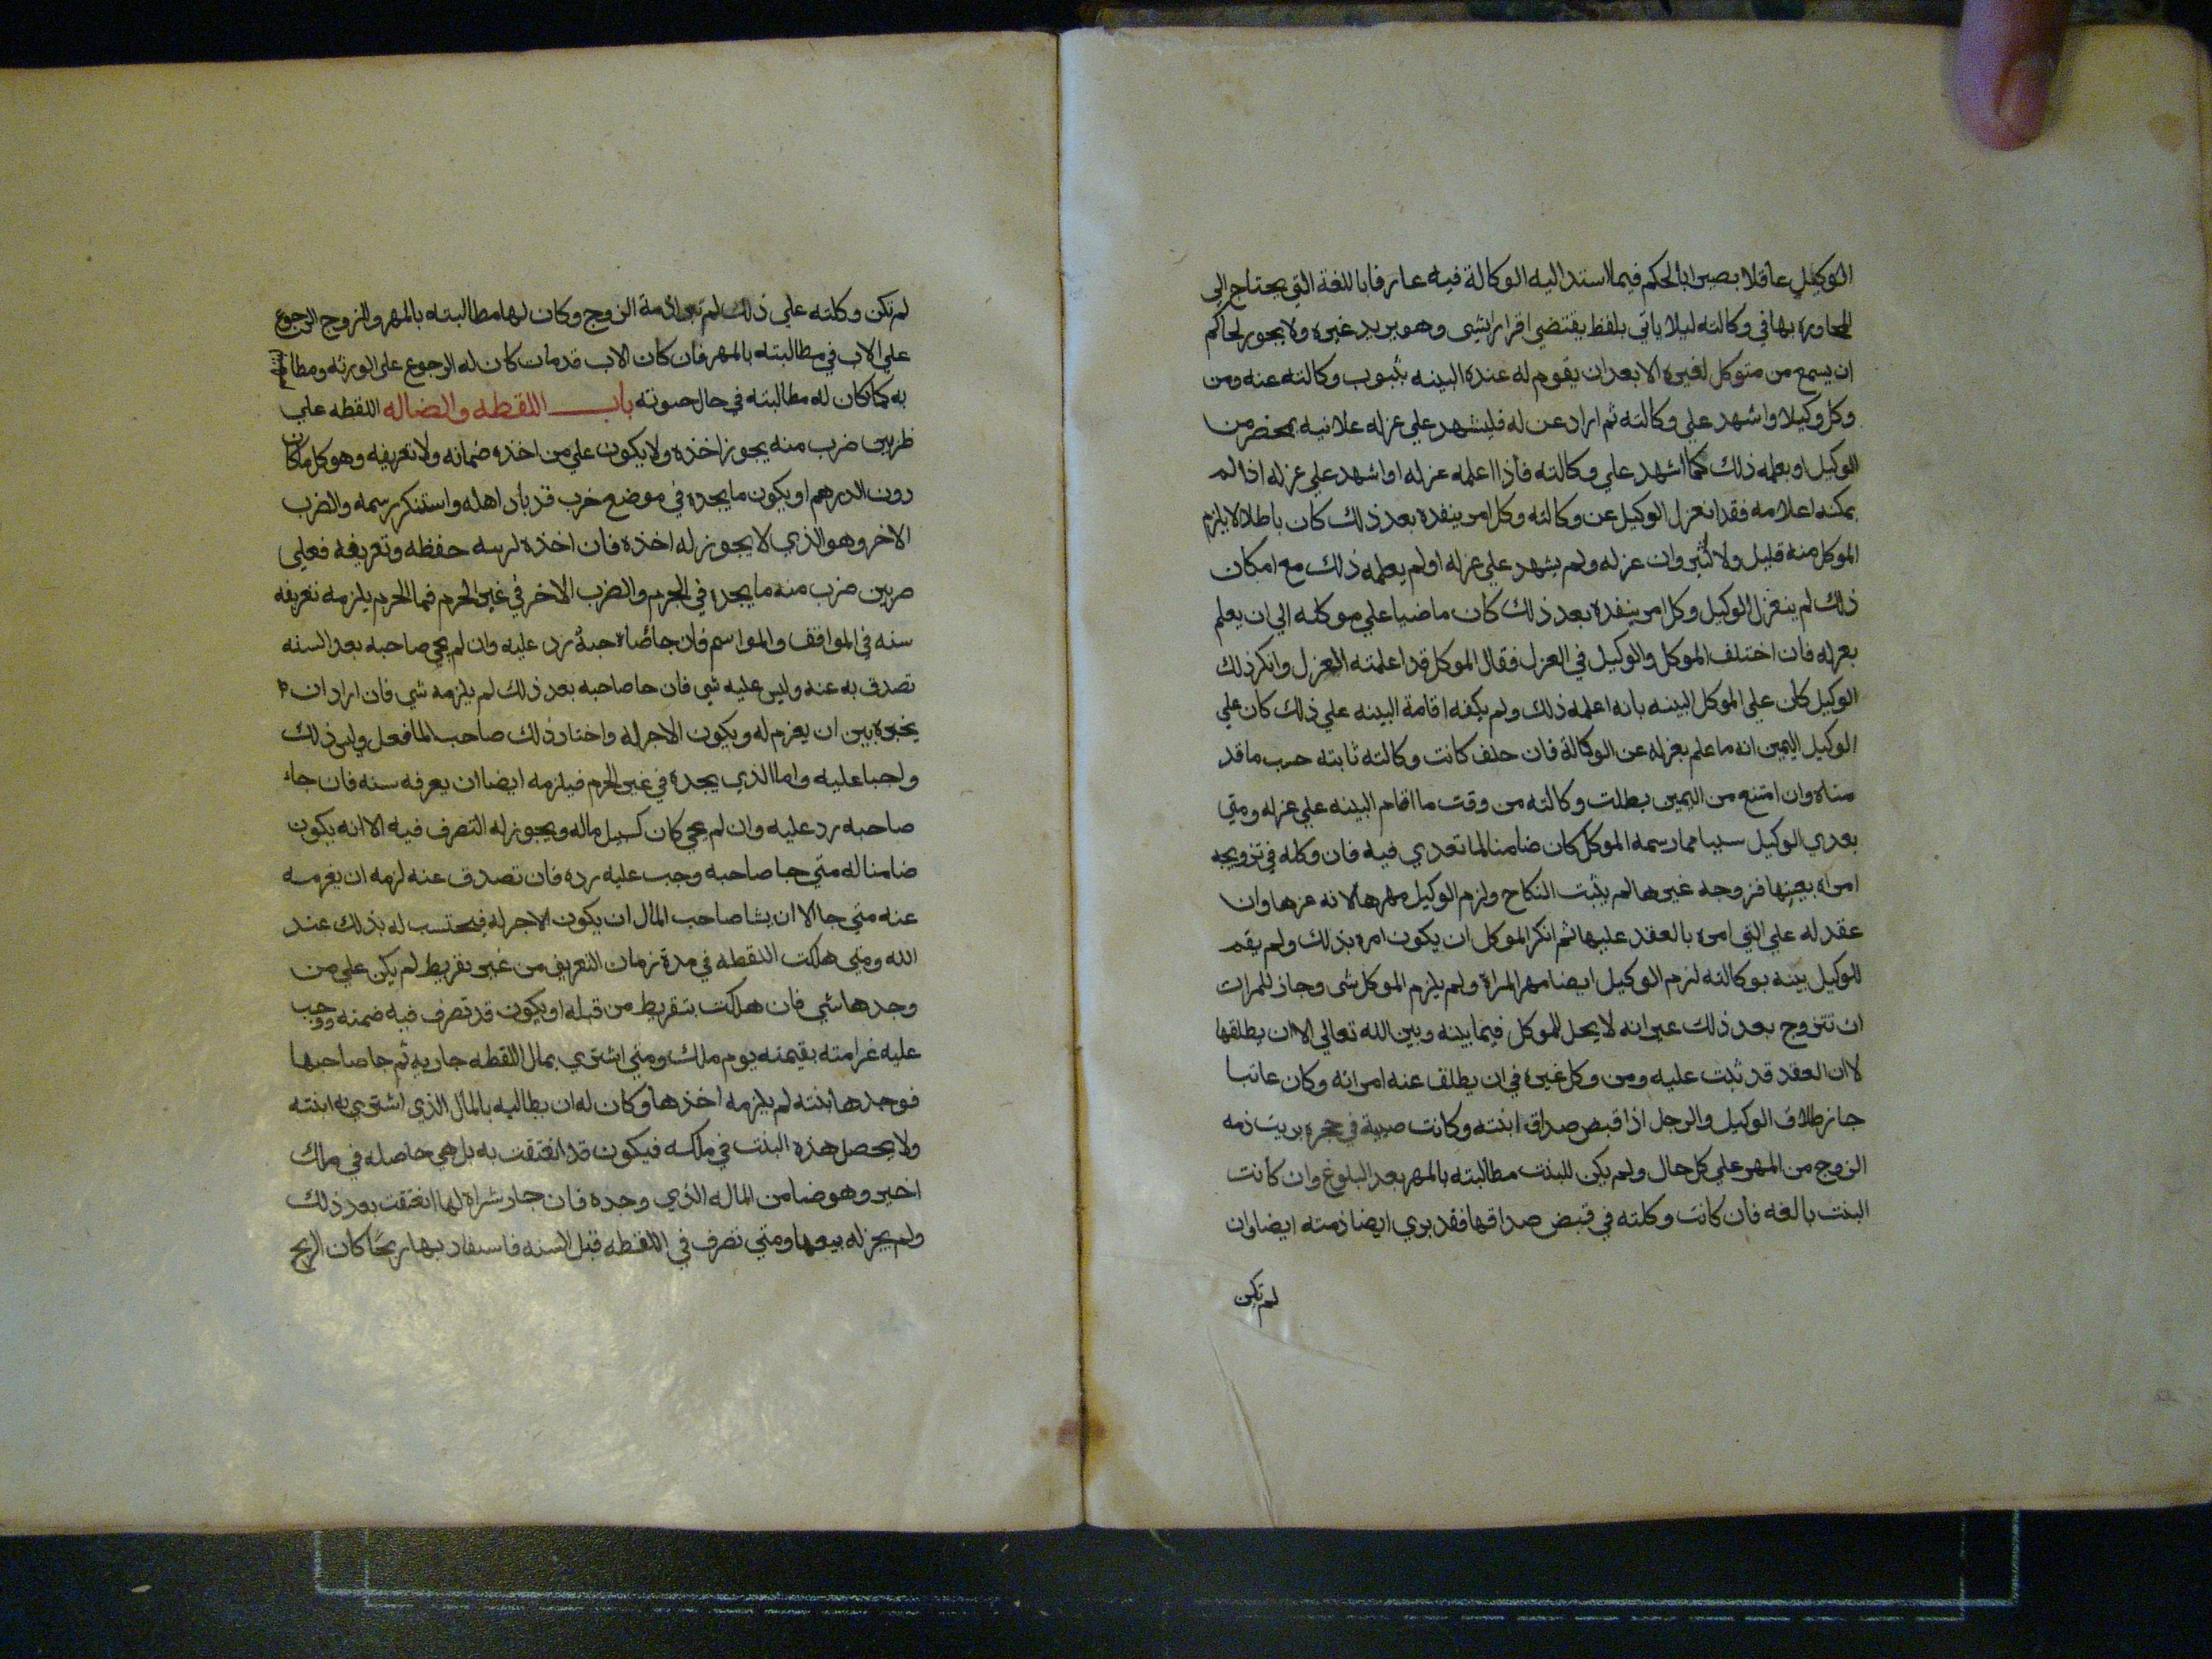 الوكيل عاقلا بصيرا بالحكم فيما اسند اليه الوكالة فيه عارفا باللغة التي يحتاج الي
المحاوره بها في وكالته ليلا ياتي بلفظ يقتضي اقرارا بشي وهو يريد غيره ولا يجوز لحاكم
ان يسمع من متوكل لغيره الا بعد ان يقوم له عنده البينه بثبوب وكالته عنه ومن
وكل وكيلا واشهد علي وكالته ثم اراد عزله فليشهد علي عزله علانيه بمحضر من
الوكيل او يعلمه ذلك كما اشهد علي وكالته فاذا اعلمه عزله او اشهد علي عزله اذا لم
يمكنه اعلامه فقد انعزل الوكيل عن وكالته وكل امر ينفده بعد ذلك كان باطلا لا يلزم
الموكل منه قليل ولا كثير وان عزله ولم يشهد علي عزله او لم يعلمه ذلك مع امكان
ذلك لم ينعزل الوكيل وكل امر ينفده بعد ذلك كان ماضيا علي موكله الي ان يعلم
بعزله فان اختلف الموكل والوكيل في العزل فقال الموكل قد اعلمته العزل وانكر ذلك
الوكيل كان علي الموكل البينه بانه اعلمه ذلك ولم يكفه اقامة البينه علي ذلك كان علي
الوكيل اليمين انه ما علم بعزله عن الوكالة فان حلف كانت وكالته ثابته حسب ما قد
مناه وان امتنع من اليمين بطلت وكالته من وقت ما اقام البينه علي عزله ومتي
بعدي الوكيل سيبا مما رسمه الموكل كان ضامنا لما تعدي فيه فان وكله في تزويجه
امراه بعينها فزوجه غيرها لم يثبت النكاح ولزم الوكيل مهرها لانه عرها وان
عقد له علي التي امره بالعقد عليها ثم انكر الموكل ان يكون امره بذلك ولم يقم
للوكيل بينه بوكالته لزم الوكيل ايضا مهر المراة ولم يلزم الموكل شي وجاز للمرات
ان تتزوج بعد ذلك غير انه لا يحل للموكل فيما بينه وبين الله تعالي الا ان يطلقها
لان العقد قد ثبت عليه ومن وكل غيره في ان يطلق عنه امراته وكان عائبا
جاز طلاق الوكيل والرجل اذا قبض صداق ابنته وكانت صبية في حجره بريت ذمه
الزوج من المهر علي كل حال ولم يكن للبنت مطالبته بالمهر بعد البلوغ وان كانت
البنت بالغه فان كانت وكلته في قبض صداقها فقد بري ايضا ذمته ايضا وان
لم تكن
لم تكن وكلته علي ذلك لم تبرا ذمة الزوج وكان لها مطالبته بالمهر والزوج الرجوع
علي الاب في مطالبته بالمهر فان كان الاب قد مات كان له الرجوع علي الورثه ومطالبتهم
به كما كان له مطالبته في حال حيوته باب اللقطه والضاله اللقطه علي
ضربين ضرب منه يجوز اخذه ولا يكون علي من اخذه ضمانه ولا تعريفه وهو كل ما كان
دون الدرهم او يكون ما يجده في موضع خرب قد باد اهله واستنكر رسمه والضرب
الاخر وهو الذي لا يجوز له اخذه فان اخذه لزمه حفظه وتعريفه فعلي
ضربين ضرب منه ما يجده في الحرم والضرب الاخر في غير الحرم فما الحرم يلزمه تعريفه
سنه في المواقف والمواسم فان جا صاحبه رد عليه وان لم يجي صاحبه بعد السنه
تصدق به عنه وليس عليه شي فان جا صاحبه بعد ذلك لم يلزمه شي فان اراد ان
يخيره بين ان يغرم له ويكون الاجر له واختار ذلك صاحب المال فعل وليس ذلك
واجبا عليه واما الذي يجده في غير الحرم فيلزمه ايضا ان يعرفه سنه فان جاء
صاحبه رد عليه وان لم يجي كان كسبيل ماله ويجوز له التصرف فيه الا انه يكون
ضامنا له متي جا صاحبه وجب عليه رده فان تصدق عنه لزمه ان يغرمه
عنه متي جا الا ان يشا صاحب المال ان يكون الاجر له فيحتسب له بذلك عند
الله ومتي هلكت اللقطه في مدة زمان التعريف من غير تفريط لم يكن علي من
وجدها شي فان هلكت بتفريط من قبله او يكون قد تصرف فيه ضمنه ووجب
عليه غرامته بقيمته يوم هلك ومتي اشتري بمال اللقطه جاريه ثم جا صاحبها
فوجدها ابنته لم يلزمه اخذها وكان له ان يطالبه بالمال الذي اشتري به ابنته
ولا يحصل هذه البنت في ملكه فيكون قد انعتقت به بل هي حاصله في ملك
اخير وهو ضامن الماله الذي وجده فان جاز شراه لها انعتقت بعد ذلك
ولم يجز له بيعها ومتي تصرف في اللقطه قبل السنه فاستفاد بها ربحا كان الربح